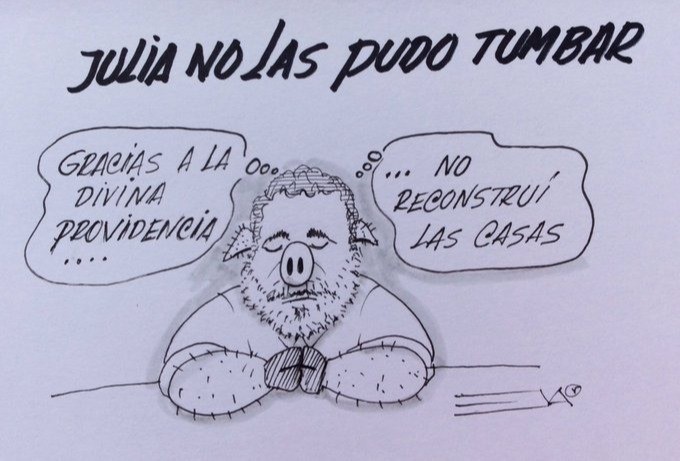 JULIA NO LAS PUDO TUMBAR
GRACIAS A LA
DIVINA
PROVIDENCIA
....
... NO
RECONSTRUÍ
LAS CASAS